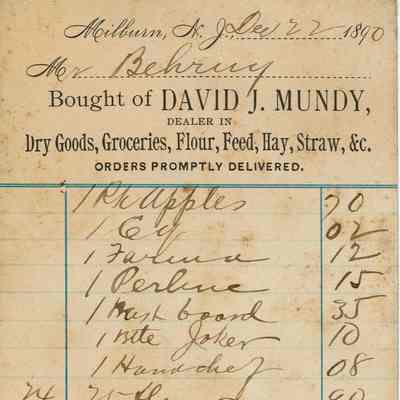 Milburn, N. J. Dec 22 1890
Mr Behruy
Bought of DAVID J. MUNDY,
DEALER IN
Dry Goods, Groceries, Flour, Feed, Hay, Straw, &c.
ORDERS PROMPTLY DELIVERED.
1 Apples 70
1 02
1 Farina 12
1 Perline 15
1 Wash board 35
1 Joker 10
1 Handchef 08
24 90